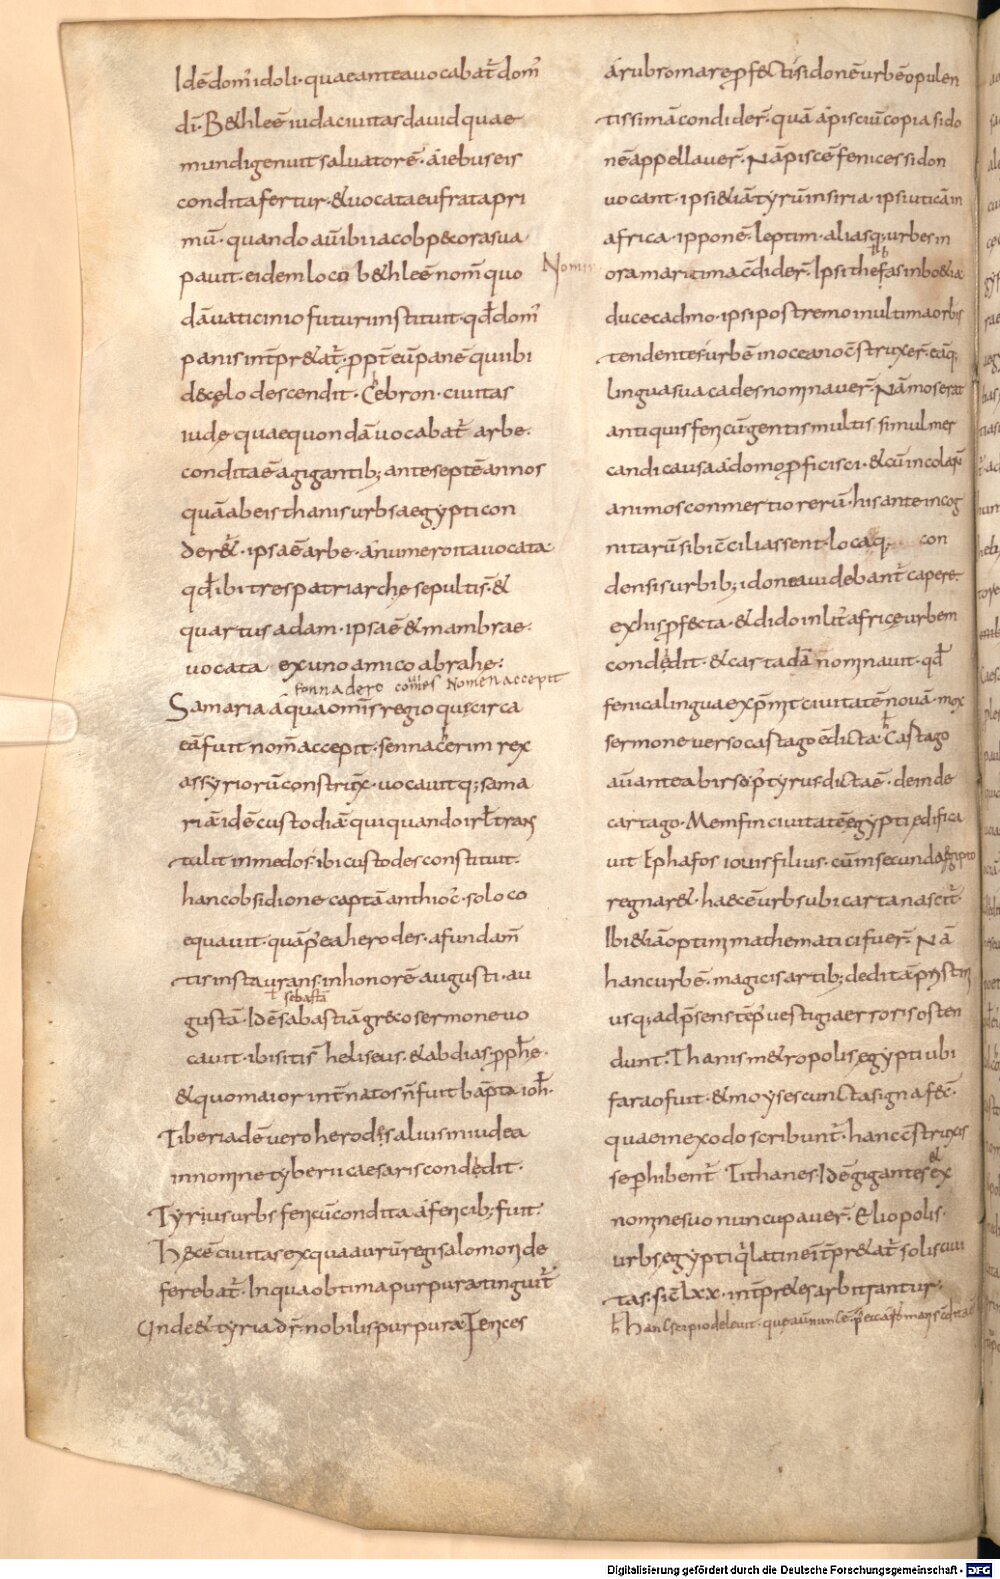 Idē dom' idoli· quae antea uocabat̄ dom'
dī· B&hleē iuda ciuitas dauid quae
mundi genuit saluatorē· a iebuseis
condita fertur· & uocata eufrata pri
mū· quando aū ibi iacob p&cora sua
pauit· eidem loco b&hleē nom̄ quo
dā uaticinio futuri instituit· qđ dom'
panis int̄pr&at̄· ppt̄ eū panē qui ibi
de cęlo descendit· Cebron· ciuitas
iude quae quondā uocabat̄ arbe·
condita ē a gigantib; ante septē annos
quā ab eis thanis urbs aegypti con
der&· ipsa ē arbe· a numero ita uocata
qđ ibi tres patriarche sepulti s̄· &
quartus adam· ipsa ē & mambrae·
uocata ex uno amico abrahe·
Nomen accepit
Samaria a qua om̄is regio quę circa
eā fuit nom̄ accepit· sennacerim rex
assyrioru construx̄· uocauitq; sama
riā idē custodiā qui quando irl̄ trans
tulit in medos· ibi custodes constituit·
hanc obsidione captā anthioc̄· solo co
equauit· quā p' ea herodes· a fundam̄
tis instaurans· in honorē augusti· au
sebastā
gustā· Idē sabastiā greco sermone uo
cauit· ibi siti s̄ heliseus· & abdias pph̄e·
& quo maior int̄ natos n̄ fuit bap̄ta ioh̄·
Tiberiadē uero herodes alius in iudea
in nomine tyberii caesaris condedit·
Tyrius urbs fenicū condita a fenicib; fuit·
H&c ē ciuitas ex qua aurū regi salomoni de
ferebat̄· In qua obtima purpura tinguit̄
Unde & tyria dr̄· nobilis purpura· Fenices
a rubro mare pf&cti sidonē urbē opulen
tissimā condider̄· quā a pisciū copia sido
nē appellauer̄· Nā piscē fenices sidon
uocant· ipsi & iā tyrū in siria· ipsi uticā in
africa· ipponē· leptim· aliasq; urbes in
ora maritima c̄dider̄· Ipsi thebas in bo&ia
duce cadmo· ipsi postremo in ultima orbis
tendentes urbē in oceano c̄struxer̄· eāq;
lingua sua cades nominauer̄· Nā mos erat
antiquis fenicū gentis multis· simul mer
candi causa a domo pficisci· & cū incolarū
animos conmertio rerū· his ante incog
nitarū sibi c̄ciliassent· loca q; con
densis urbib; idonea uidebant̄ capere·
ex his pf&cta· & dido in lit̄ africę urbem
condedit· & cartadā nominauit· qđ
fenica lingua exp̄mit ciuitatē nouā· mox
sermone uerso castago ē dicta· Castago
aū antea birsa p' tyrus dicta ē· deinde
cartago· Memfin ciuitatē ęgypti ędifica
uit Ephafos iouis filius· cū in secunda ęgipto
regnar&· haec ē urbs ubi carta nascit̄·
Ibi & iā optimi mathematici fuer̄· Nā
hanc urbē· magicis artib; deditā pristini
usq; ad p̄sens tēp' uestigia erroris osten
dunt· Thanis m&ropolis ęgypti ubi
farao fuit· & moyses cuncta signa fec̄·
quae in exodo scribunt̄· hanc c̄struxis
se phibent̄ Tithanes· Idē gigantes & ex
nomine suo nuncupauer̄· Eliopolis·
urbs ęgypti q̄ latine int̄pr&at̄ solis ciui
tas· sic̄ lxx· int̄pr&es arbitrantur·
h̄ Hanc scipio deleuit· quę aū nunc ē· p'ea a romanis c̄dita ē